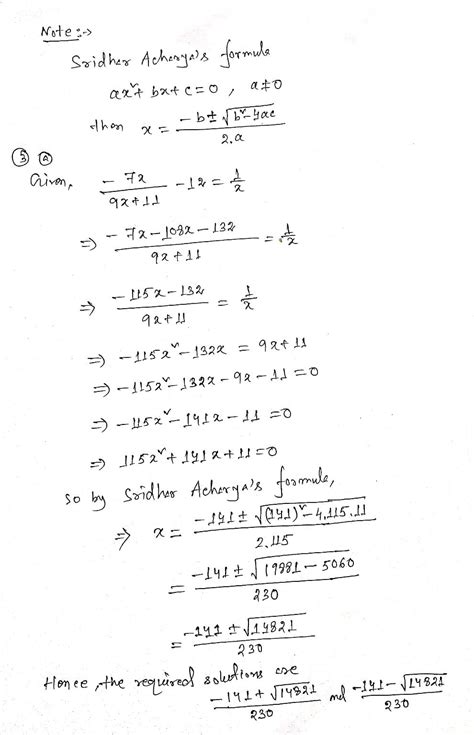 Note :->
Sridher Acherya's formule
ax² + bx + c = 0 , a ≠ 0
then x = (-b ± √(b² - 4ac)) / 2.a
③ Ⓐ
Given, (-7x)/(9x+11) - 12 = 1/x
⇒ (-7x - 108x - 132)/(9x+11) = 1/x
⇒ (-115x - 132)/(9x+11) = 1/x
⇒ -115x² - 132x = 9x + 11
⇒ -115x² - 132x - 9x - 11 = 0
⇒ -115x² - 141x - 11 = 0
⇒ 115x² + 141x + 11 = 0
so by Sridher Acherya's formule,
⇒ x = (-141 ± √((141)² - 4.115.11)) / 2.115
= (-141 ± √(19881 - 5060)) / 230
= (-141 ± √14821) / 230
Hence, the required solutions are
(-141 + √14821)/230 and (-141 - √14821)/230